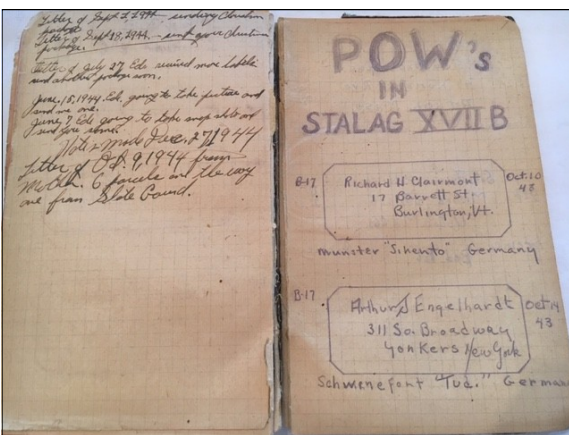 Letter of Sept 2, 1944 - sending Christmas
package
Letter of Sept 18, 1944 - sent you Christmas
package.
Letter of July 27 Ede received more labels
and another package soon.
June, 15, 1944 Ede, going to take picture and
send me one.
June, 7 Ede going to take snap shots and
send you some.
Note made Dec. 27, 1944
Letter of Oct. 9, 1944 from
Mother. 6 parcels on the way
one from
POW's
IN
STALAG XVII B
B-17
Richard H Clairmont
17 Barrett St.
Burlington, Vt.
Oct. 10
43
munster Germany
B-17
Arthur S Engelhardt
311 So. Broadway
Yonkers New York
Oct 14
43
Schwenefort "Tue." German